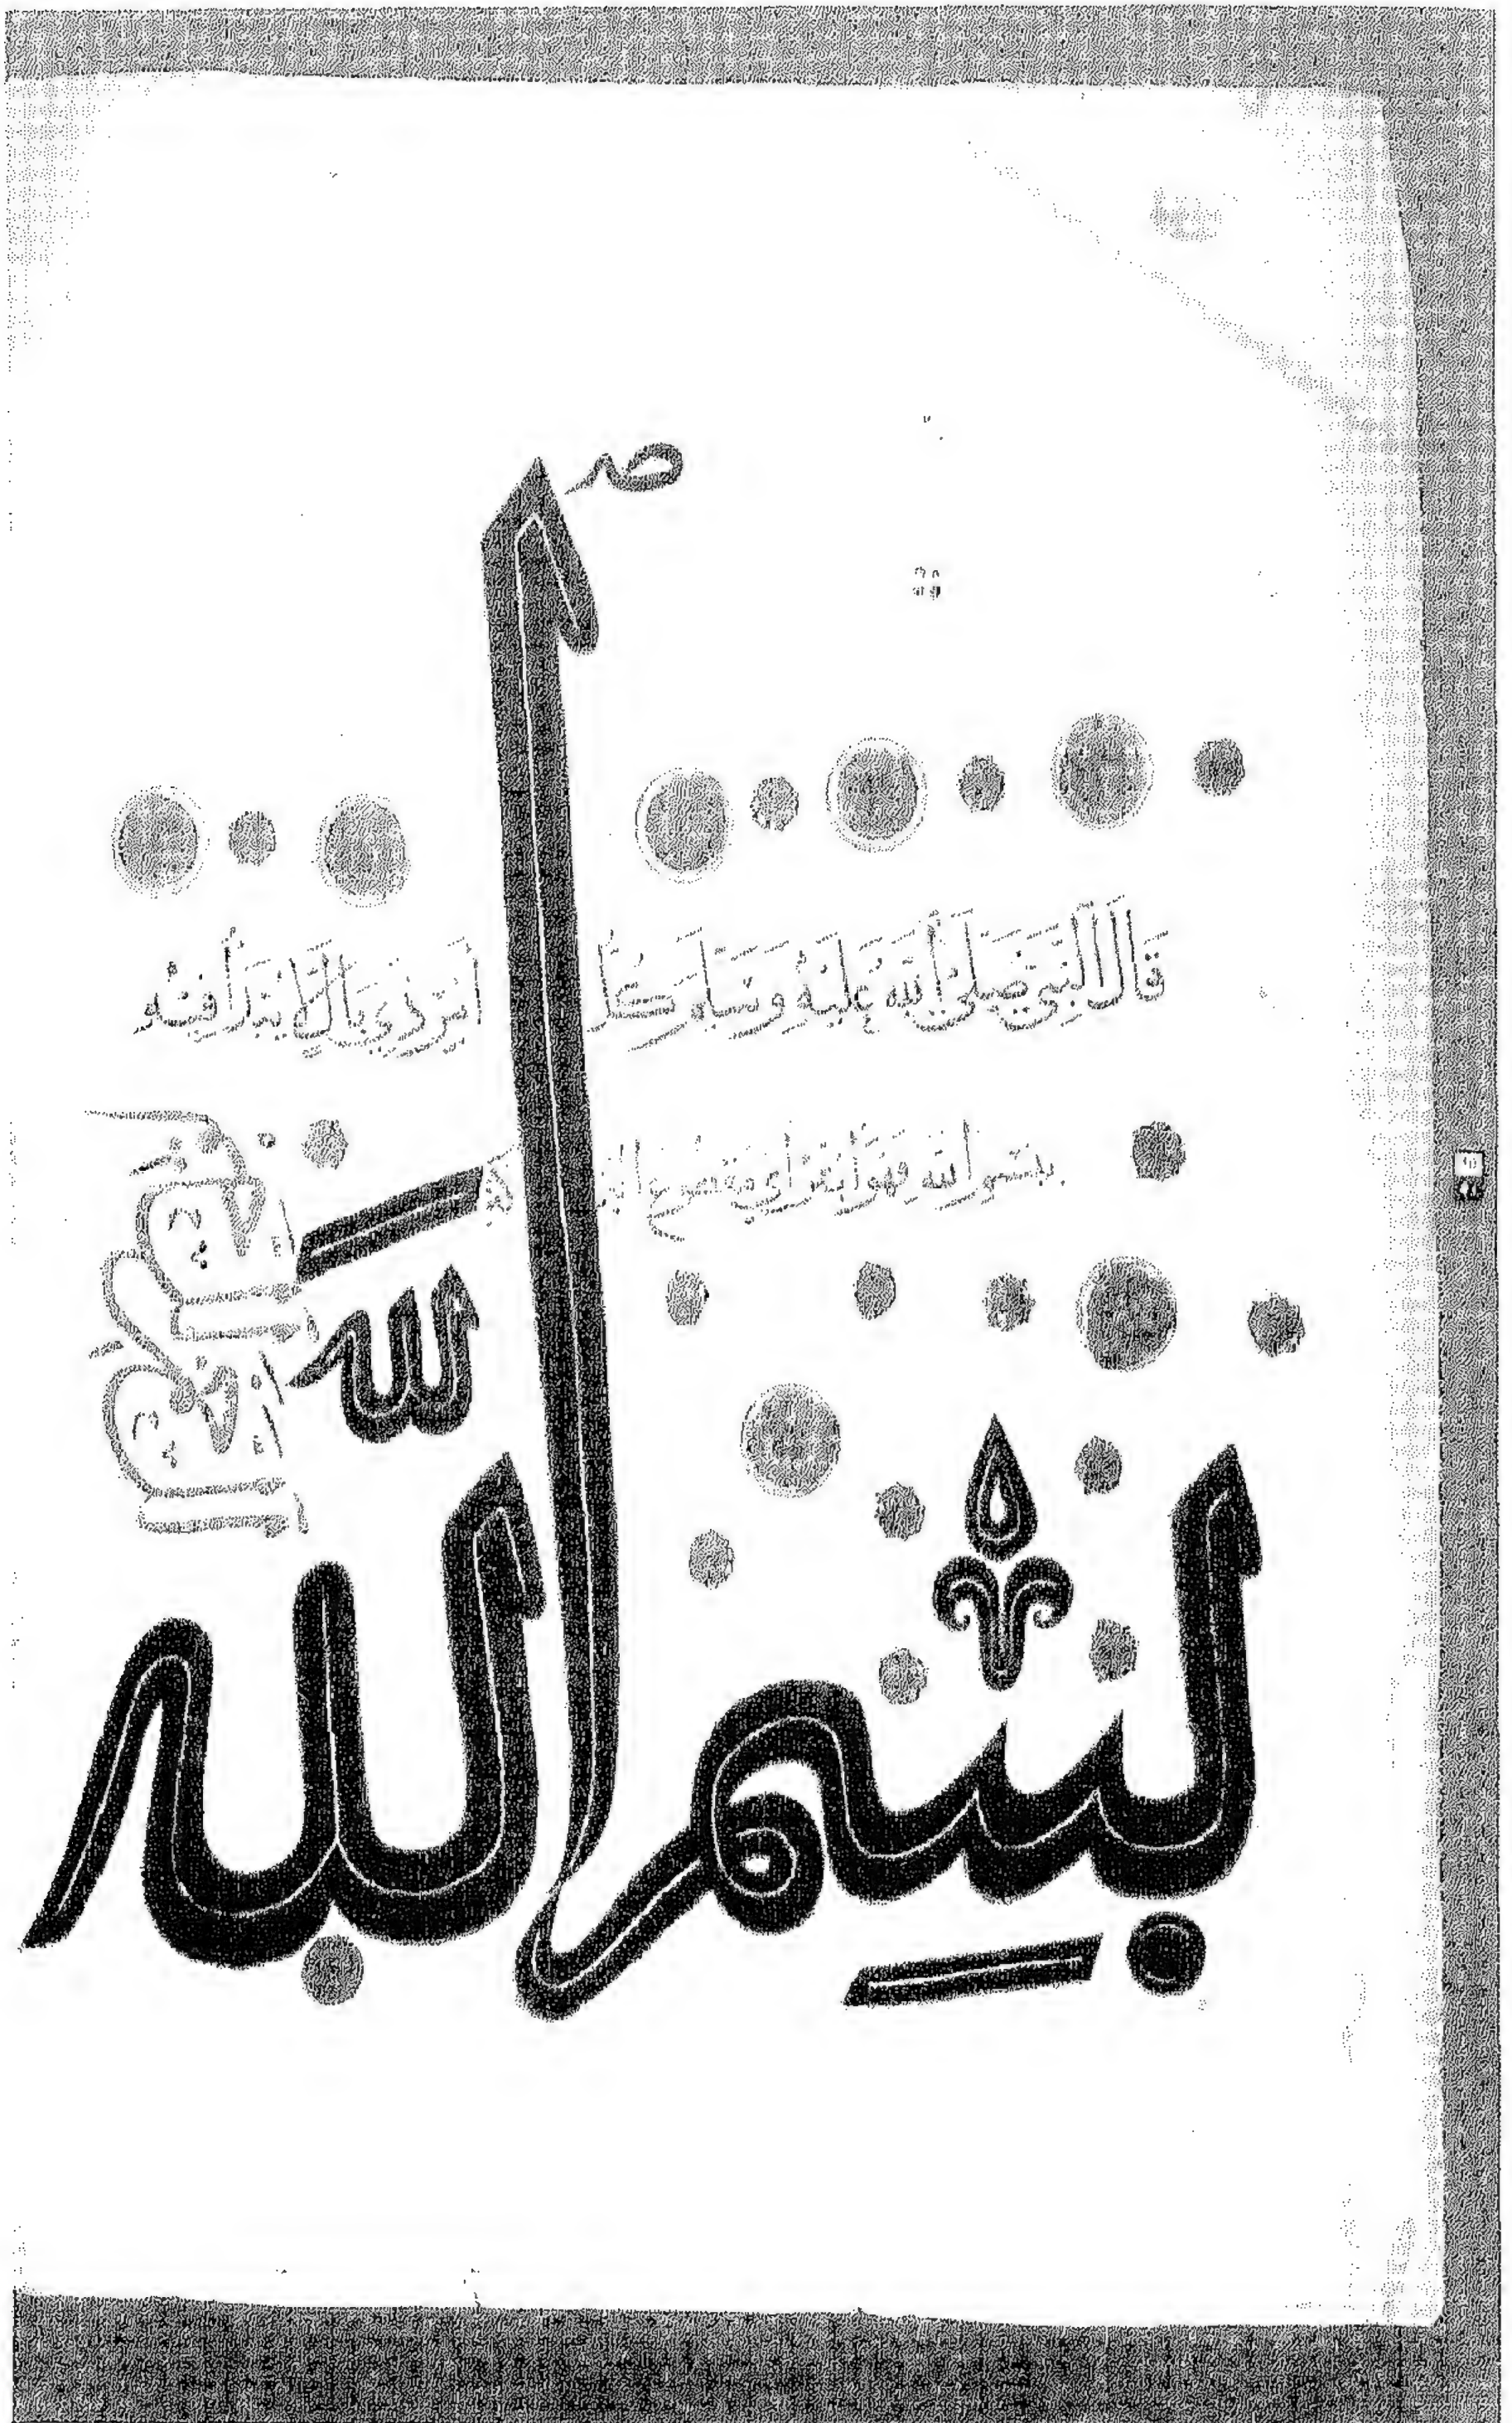 قَالَ النَّبِيُّ صَلَّى اللَّهُ عَلَيْهِ وَسَلَّمَ كُلُّ أَمْرٍ ذِي بَالٍ لَا يُبْدَأُ فِيهِ
بِبِسْمِ اللَّهِ فَهُوَ أَبْتَرُ أَيْ مَقْطُوعُ
بِسْمِ اللَّهِ